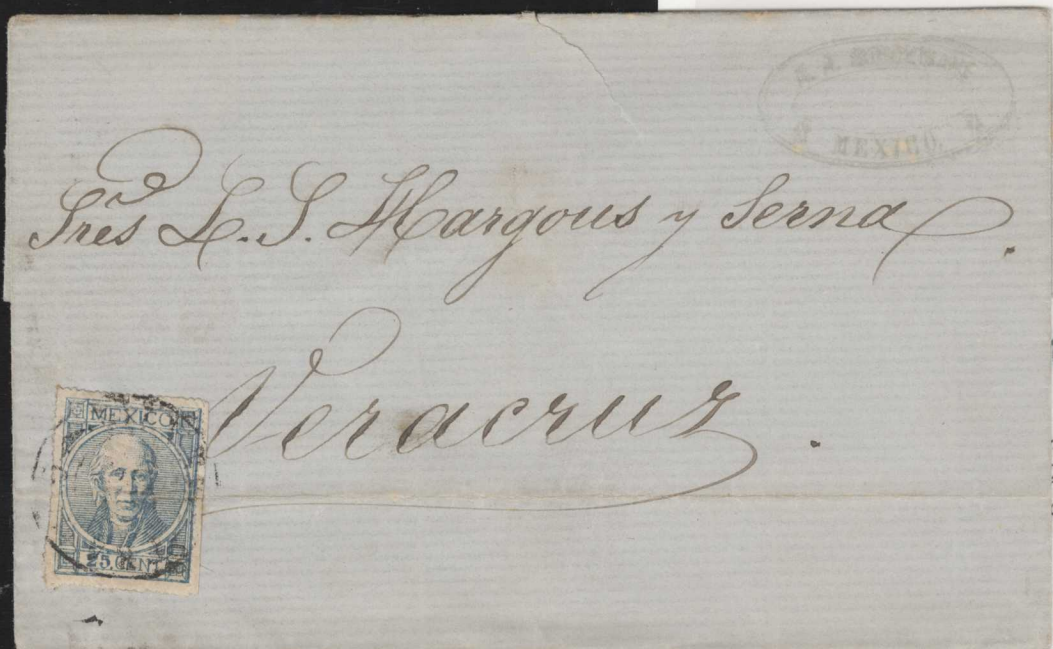 MEXICO.
Sres L. S. Hargous y Serna.
Veracruz.
MEXICO
25. CENT